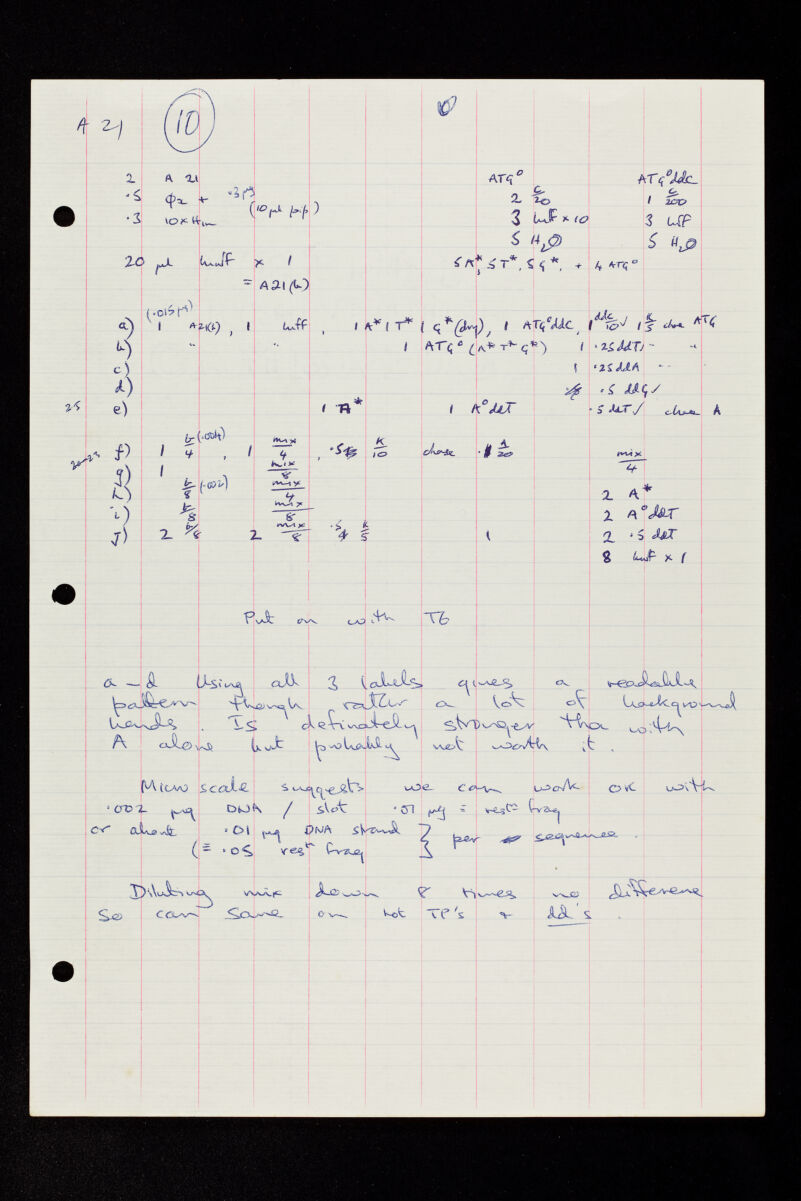 A 21 10
2 A 21 ATG° ATG°ddC
.5 Φ2 + .3 µg 2 C/20 1 C/200
.3 10 x Hin (10 µl pip) 3 buff x 10 3 buff
5 H2O 5 H2O
20 µl buff x 1 5 A*, 5 T*, 5 G*, + 4 ATG°
= A21(b)
(.015 µg)
a) 1 A21(b), 1 buff, 1 A* 1 T* 1 G* (dry), 1 ATG°ddC, 1 ddC/10 ✓ 1 K/5 chase ATG
b) " " 1 ATG° (A* T* G*) 1 .25 ddT ✓ " "
c) 1 .25 ddA " "
d) .5 ddG ✓
25 e) 1 A* 1 A°ddT .5 ddT ✓ chase A
f) 1 b/4 (.004), 1 mix/4, .5 K/10 chase .1 A/20 mix/4
g) 1 mix/8
h) b/8 (.002) mix/4 2 A*
i) b/8 mix/8 2 A°ddT
j) 2 b/8 2 mix/8 .5 K/5 1 2 .5 ddT
8 buff x 1
Put on with T6
a – d Using all 3 labels gives a readable
pattern though rather a lot of background
bands. Is definately stronger tha with
A alone but probably not worth it.
Micro scale suggests we can work OK with
.002 µg DNA / slot .01 µg ≡ restn frag
or about .01 µg DNA strand } per sequence.
(≡ .05 restn frag
Diluting mix down 8 times no difference
so can save on hot TP's + dd's.